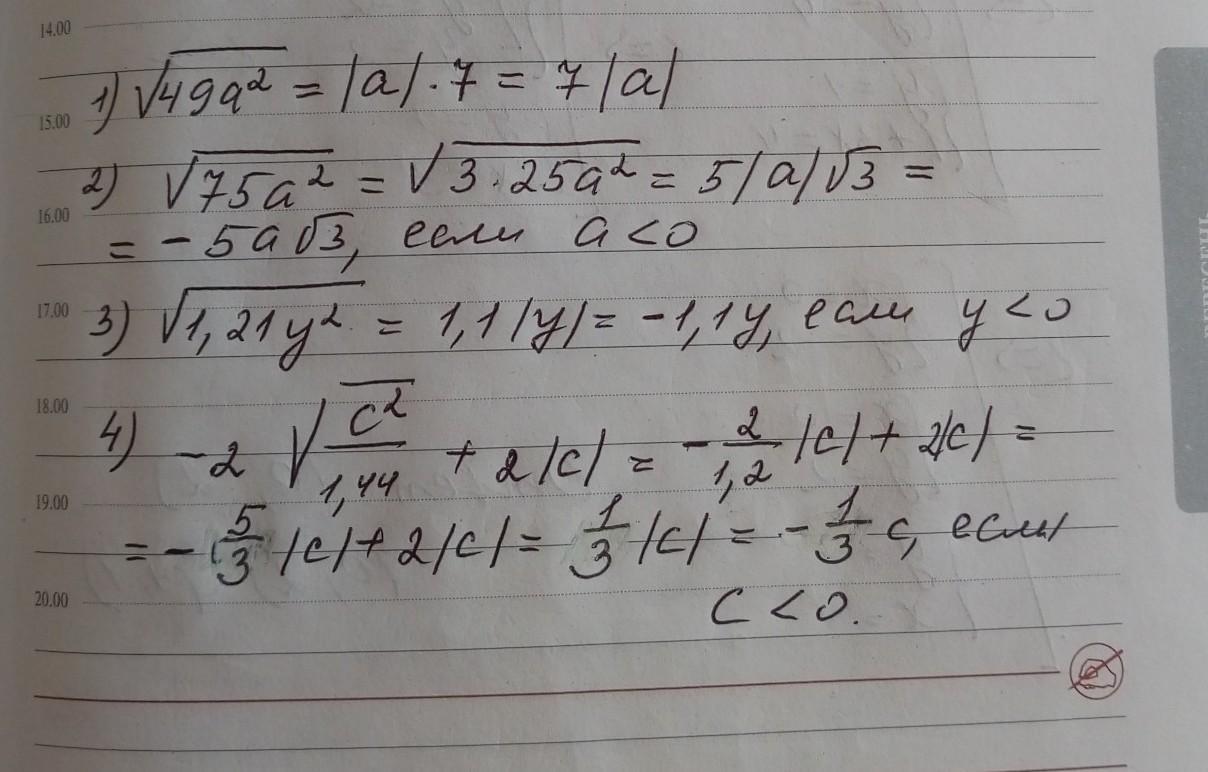 14.00
1) √49a² = |a| · 7 = 7 |a|
15.00
2) √75a² = √3 · 25a² = 5|a|√3 =
16.00
= - 5a√3, если a < 0
17.00
3) √1,21y² = 1,1|y| = -1,1y, если y < 0
18.00
4) -2 √c²/1,44 + 2|c| = - 2/1,2 |c| + 2|c| =
19.00
= - 5/3 |c| + 2|c| = 1/3 |c| = - 1/3 c, если
20.00
c < 0.